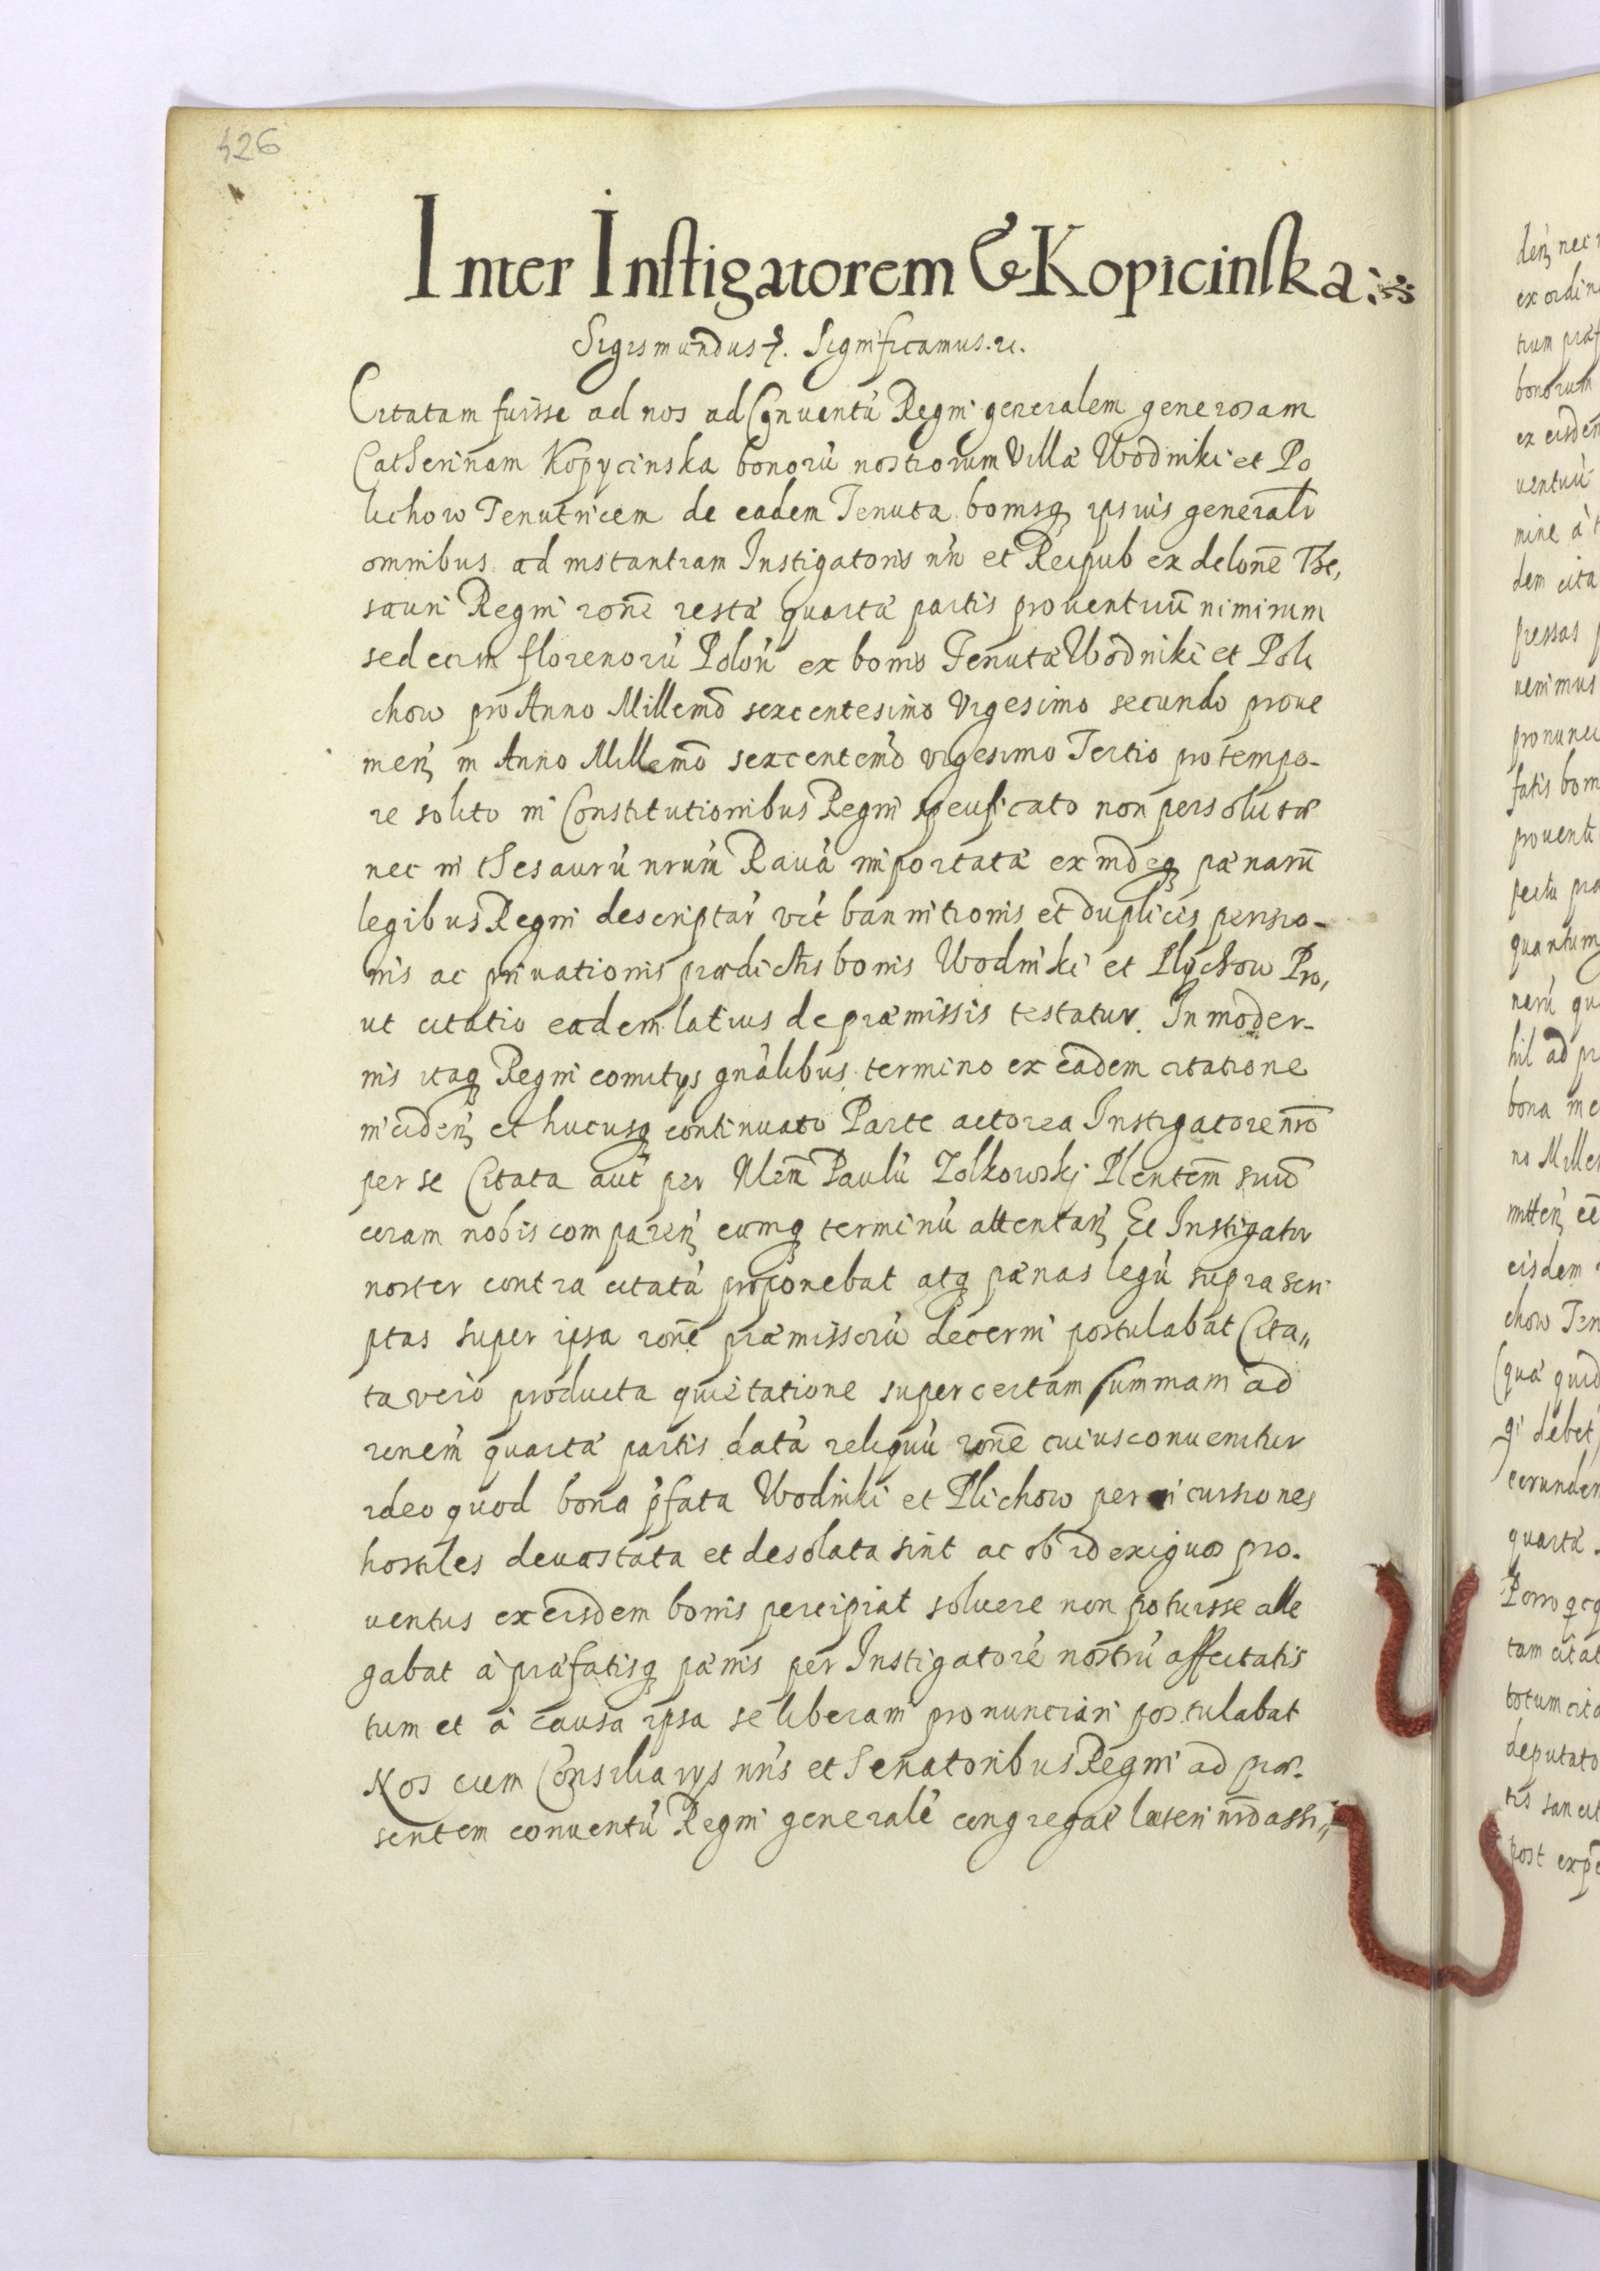 426
Inter Instigatorem & Kopicinska
Sigismundus &. Significamus. etc.
Citatam fuisse ad nos ad Conventū Regni generalem generosam
Catherinam Kopycinska bonorū nostrorum Villæ Wodniki et Po
lichow Tenutricem de eadem Tenuta bonisq ipsius generalr
omnibus ad instantiam Instigatoris nri et Reipub ex delone The,
sauri Regni rone restæ quartæ partis proventuū nimirum
sedecim florenorū Polon ex bonis Tenutæ Wodniki et Poli
chow pro Anno Millemo sexcentesimo vigesimo secundo prove
nien in Anno Millemo sexcentemo vigesimo Tertio pro tempo-
re solito in Constitutionibus Regni specificato non persolutæ
nec in thesaurū nrum Ravæ importatæ ex indeq pænarū
legibus Regni descriptar vit bannitionis et duplicis pensio-
nis ac privationis prædictis bonis Wodniki et Plychow Pro,
ut citatio eadem latius de præmissis testatur. In moder-
nis itaq Regni comitys gnalibus termino ex eadem citatione
inciden et hucusq continuato Parte actorea Instigatore nro
per se Citata aut per Nlem Paulū Zolkowskj Plentem suū
coram nobis comparen eumq terminū attentan Et Instigator
noster contra citatā proponebat atq pænas legū supra scri
ptas super ipsa rone præmissorū decerni postulabat Cita„
ta vero producta quietatione super certam summam ad
ronem quartæ partis datā reliquū rone cuius convenitur
ideo quod bona pfata Wodniki et Plichow per incursiones
hostiles devastata et desolata sint ac ob id exiguos pro.
ventus ex eisdem bonis percipiat solvere non potuisse alle
gabat à præfatisq pænis per Instigatorē nostrū affectatis
tum et à causa ipsa se liberam pronunciari postulabat
Nos cum Consiliarys nris et Senatoribus Regni ad præ-
sentem conventū Regni generalē congregat lateri nro assi„